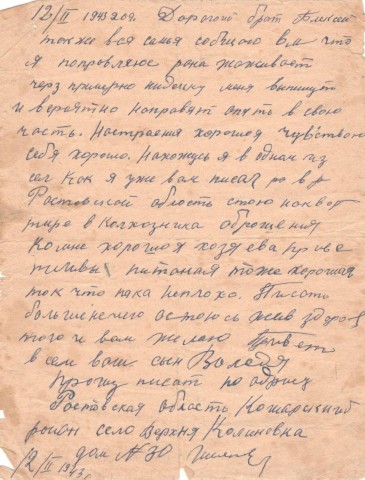 12/II 1943 года. Дорогой брат Алксий
также вся семья собчаю вам что
я поправляюс рана заживает
черз примерно нидолку меня выпишут
и вероятно направят опять в свою
часть. Настраения хорошоя чувствою
себя хорошо. Нахожусь я в однам из
сел как я уже вам писал
Ростовской область стою на квор
тире в колхозника
Комне хорошоя хозяева приве
тливы питания тоже хорошая
ток что пака неплохо. Писать
больше нечего остоюсь жив здоров
того и вам желаю Привет
всем ваш сын Валодя
Прошу писат по адрису
Ростовская область Кошарский
район село Верхня Колиновка
дом № 30
12/II 1943г